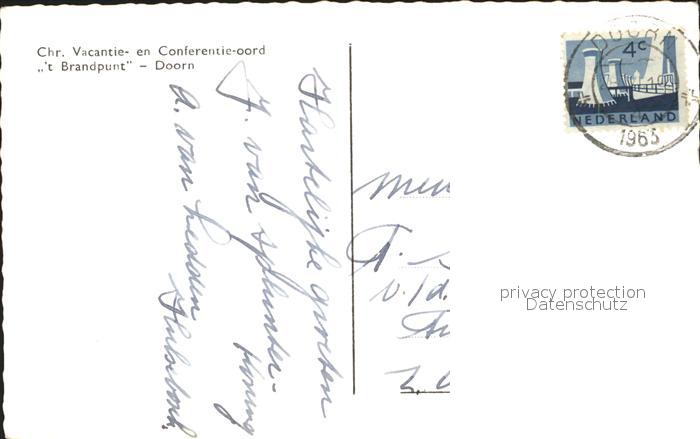 Chr. Vacantie- en Conferentie-oord
„'t Brandpunt” – Doorn
Hartelijke groeten
J. van Splunder-
Honing
A. van
DOORN
4c
NEDERLAND
1963
v./d.
privacy protection
Datenschutz